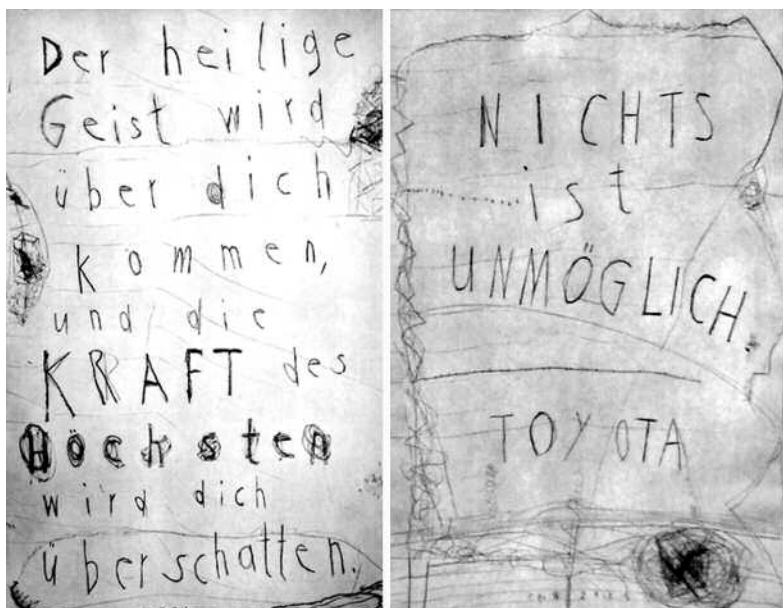 Der heilige
Geist wird
über dich
kommen,
und die
KRAFT des
Höchsten
wird dich
überschatten.
NICHTS
ist
UNMÖGLICH.
TOYOTA